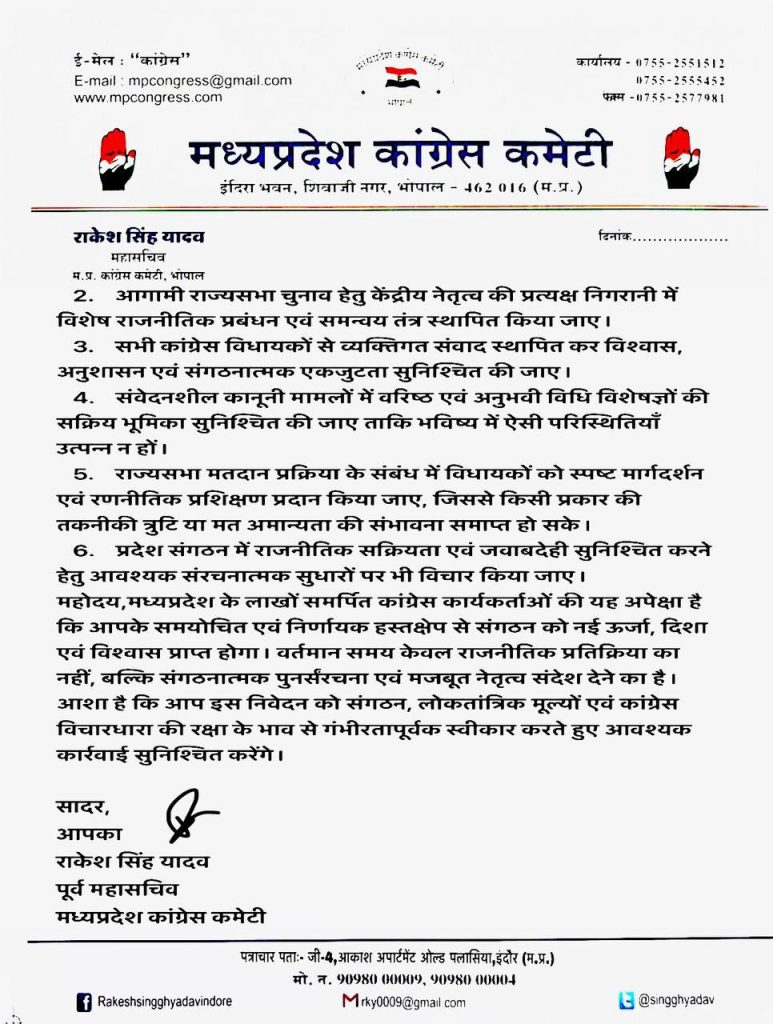 ई-मेल : “कांग्रेस”
E-mail : mpcongress@gmail.com
www.mpcongress.com
मध्यप्रदेश कांग्रेस कमेटी
भोपाल
कार्यालय - 0755-2551512
0755-2555452
फैक्स -0755-2577981
मध्यप्रदेश कांग्रेस कमेटी
इंदिरा भवन, शिवाजी नगर, भोपाल - 462 016 (म.प्र.)
राकेश सिंह यादव
महासचिव
म.प्र. कांग्रेस कमेटी, भोपाल
दिनांक....................
2. आगामी राज्यसभा चुनाव हेतु केंद्रीय नेतृत्व की प्रत्यक्ष निगरानी में
विशेष राजनीतिक प्रबंधन एवं समन्वय तंत्र स्थापित किया जाए।
3. सभी कांग्रेस विधायकों से व्यक्तिगत संवाद स्थापित कर विश्वास,
अनुशासन एवं संगठनात्मक एकजुटता सुनिश्चित की जाए।
4. संवेदनशील कानूनी मामलों में वरिष्ठ एवं अनुभवी विधि विशेषज्ञों की
सक्रिय भूमिका सुनिश्चित की जाए ताकि भविष्य में ऐसी परिस्थितियाँ
उत्पन्न न हों।
5. राज्यसभा मतदान प्रक्रिया के संबंध में विधायकों को स्पष्ट मार्गदर्शन
एवं रणनीतिक प्रशिक्षण प्रदान किया जाए, जिससे किसी प्रकार की
तकनीकी त्रुटि या मत अमान्यता की संभावना समाप्त हो सके।
6. प्रदेश संगठन में राजनीतिक सक्रियता एवं जवाबदेही सुनिश्चित करने
हेतु आवश्यक संरचनात्मक सुधारों पर भी विचार किया जाए।
महोदय,मध्यप्रदेश के लाखों समर्पित कांग्रेस कार्यकर्ताओं की यह अपेक्षा है
कि आपके समयोचित एवं निर्णायक हस्तक्षेप से संगठन को नई ऊर्जा, दिशा
एवं विश्वास प्राप्त होगा। वर्तमान समय केवल राजनीतिक प्रतिक्रिया का
नहीं, बल्कि संगठनात्मक पुनर्संरचना एवं मजबूत नेतृत्व संदेश देने का है।
आशा है कि आप इस निवेदन को संगठन, लोकतांत्रिक मूल्यों एवं कांग्रेस
विचारधारा की रक्षा के भाव से गंभीरतापूर्वक स्वीकार करते हुए आवश्यक
कार्रवाई सुनिश्चित करेंगे।
सादर,
आपका
राकेश सिंह यादव
पूर्व महासचिव
मध्यप्रदेश कांग्रेस कमेटी
पत्राचार पताः- जी-4,आकाश अपार्टमेंट ओल्ड पलासिया,इंदौर (म.प्र.)
मो. न. 90980 00009, 90980 00004
Rakeshsingghyadavindore
rky0009@gmail.com
@singghyadav